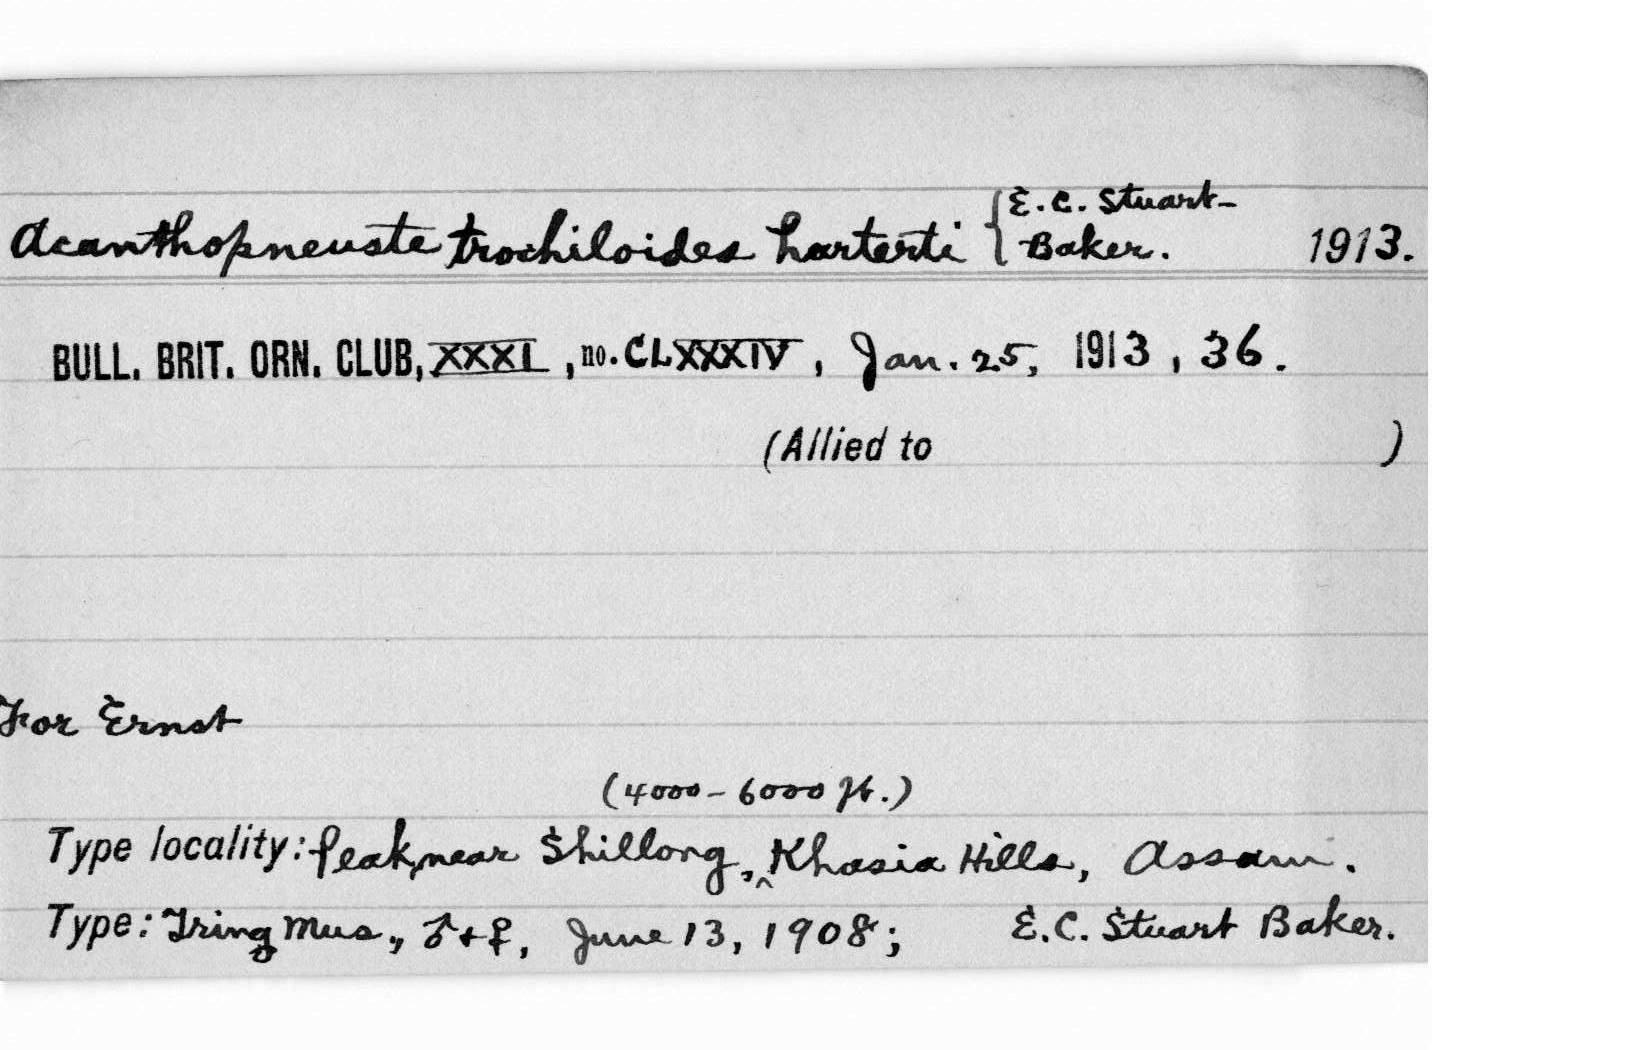 Acanthopneuste trochiloides harterti { E. C. Stuart-
Baker. 1913.
BULL. BRIT. ORN. CLUB, XXXI, no. CLXXXIV, Jan. 25, 1913, 36.
(Allied to )
For Ernst
(4000-6000 ft.)
Type locality: Peak, near Shillong, ^ Khasia Hills, Assam.
Type: Tring Mus., ♂+♀, June 13, 1908; E. C. Stuart Baker.